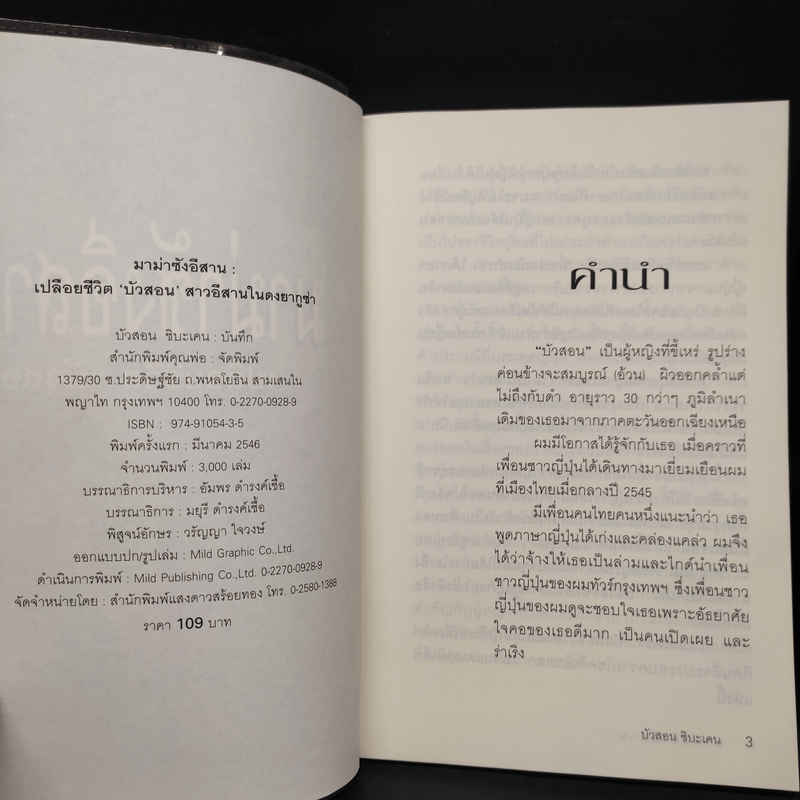 มาม่าซังอีสาน :
เปลือยชีวิต ‘บัวสอน’ สาวอีสานในดงยากูซ่า
บัวสอน ชิบะเคน : บันทึก
สำนักพิมพ์คุณพ่อ : จัดพิมพ์
1379/30 ซ.ประดิษฐ์ชัย ถ.พหลโยธิน สามเสนใน
พญาไท กรุงเทพฯ 10400 โทร. 0-2270-0928-9
ISBN : 974-91054-3-5
พิมพ์ครั้งแรก : มีนาคม 2546
จำนวนพิมพ์ : 3,000 เล่ม
บรรณาธิการบริหาร : อัมพร ดำรงค์เชื้อ
บรรณาธิการ : มยุรี ดำรงค์เชื้อ
พิสูจน์อักษร : วรัญญา ใจวงษ์
ออกแบบปก/รูปเล่ม : Mild Graphic Co.,Ltd.
ดำเนินการพิมพ์ : Mild Publishing Co.,Ltd. 0-2270-0928-9
จัดจำหน่ายโดย : สำนักพิมพ์แสงดาวสร้อยทอง โทร. 0-2580-1388
ราคา 109 บาท
คำนำ
“บัวสอน” เป็นผู้หญิงที่ขี้เหร่ รูปร่าง
ค่อนข้างจะสมบูรณ์ (อ้วน) ผิวออกคล้ำแต่
ไม่ถึงกับดำ อายุราว 30 กว่าๆ ภูมิลำเนา
เดิมของเธอมาจากภาคตะวันออกเฉียงเหนือ
ผมมีโอกาสได้รู้จักกับเธอ เมื่อคราวที่
เพื่อนชาวญี่ปุ่นได้เดินทางมาเยี่ยมเยือนผม
ที่เมืองไทยเมื่อกลางปี 2545
มีเพื่อนคนไทยคนหนึ่งแนะนำว่า เธอ
พูดภาษาญี่ปุ่นได้เก่งและคล่องแคล่ว ผมจึง
ได้ว่าจ้างให้เธอเป็นล่ามและไกด์นำเพื่อน
ชาวญี่ปุ่นของผมทัวร์กรุงเทพฯ ซึ่งเพื่อนชาว
ญี่ปุ่นของผมดูจะชอบใจเธอเพราะอัธยาศัย
ใจคอของเธอดีมาก เป็นคนเปิดเผย และ
ร่าเริง
บัวสอน ชิบะเคน 3